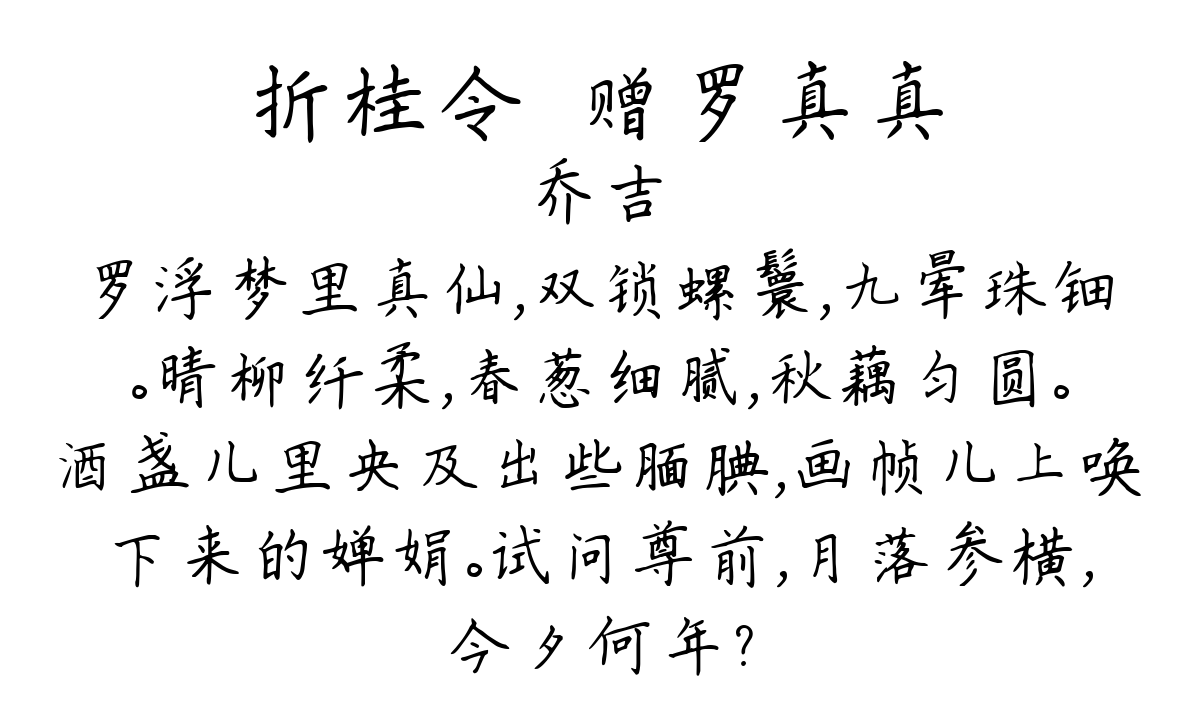 折桂令 赠罗真真
乔吉
罗浮梦里真仙,双锁螺鬟,九晕珠钿
。晴柳纤柔,春葱细腻,秋藕匀圆。
酒盏儿里央及出些腼腆,画帧儿上唤
下来的婵娟。试问尊前,月落参横,
今夕何年?